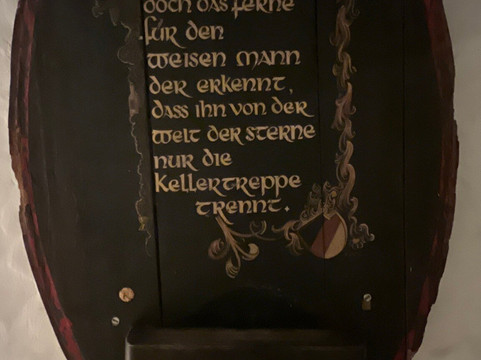 doch das ferne
für den
weisen mann
der erkennt,
dass ihn von der
welt der sterne
nur die
Kellertreppe
trennt.